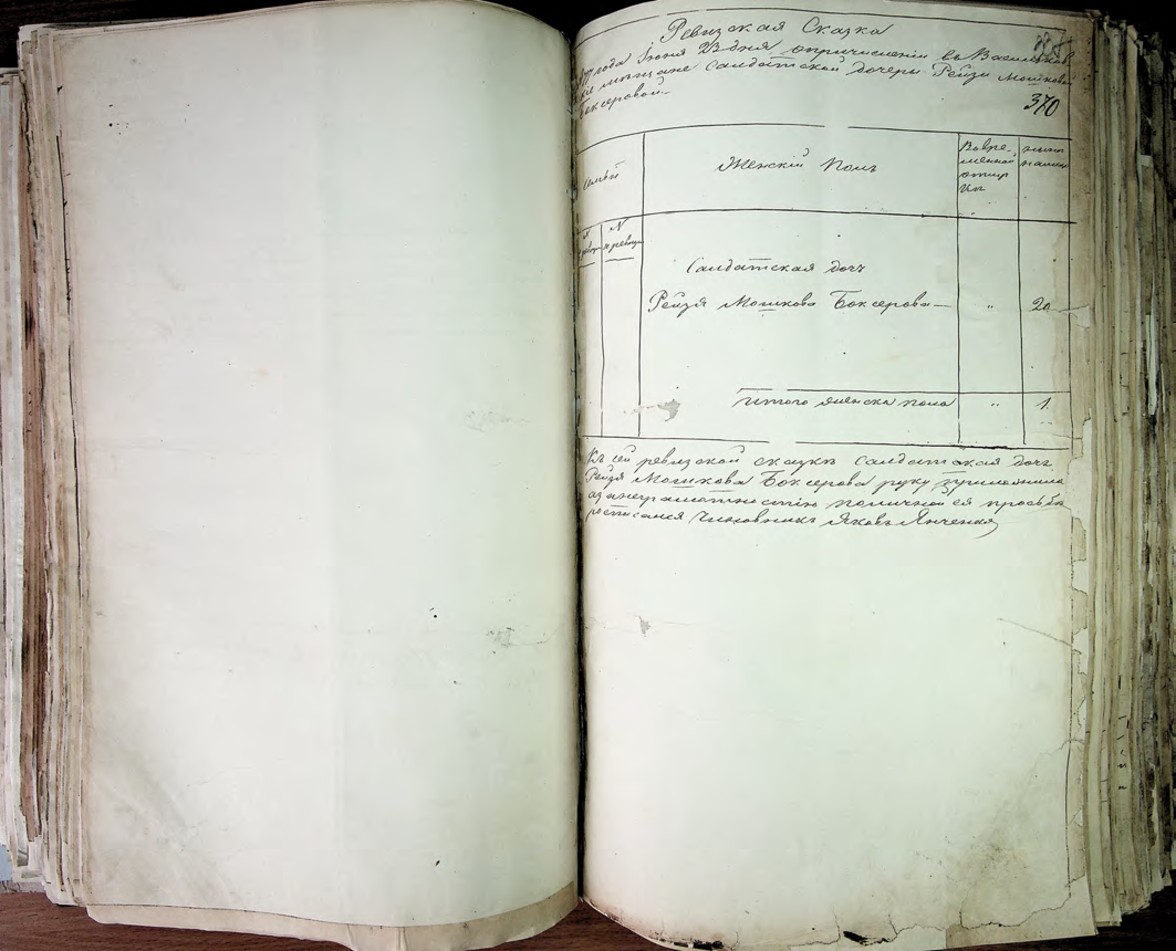 Ревизская Сказка
года Іюня 23 дня о причисленіи въ Васильков
мѣщане Салдатской дочери Рейзи Мошковой
Боксеровой
370
Женскій Полъ
Во вре-
менной
отлуч
кѣ
Салдатская дочь
Рейзя Мошкова Боксерова — „ 20
Итого женска пола „ 1
Къ сей ревизской сказкѣ Салдатская дочь
Рейзя Мошкова Боксерова руку приложила
а за неграмотностію по личной ея прозьбѣ
росписался Чиновникъ Яковъ Янченко